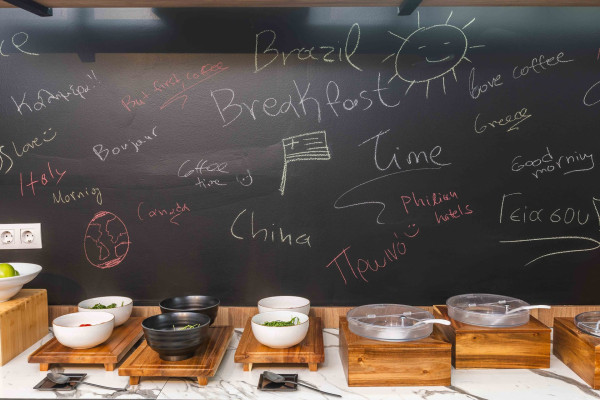 Brazil
But first coffee
Breakfast
love coffee
Greece
Bonjour
Time
Good
morning
Coffee
time
love
Italy
Morning
Canada
Philian
hotels
China
Πρωινό
Γεια σου